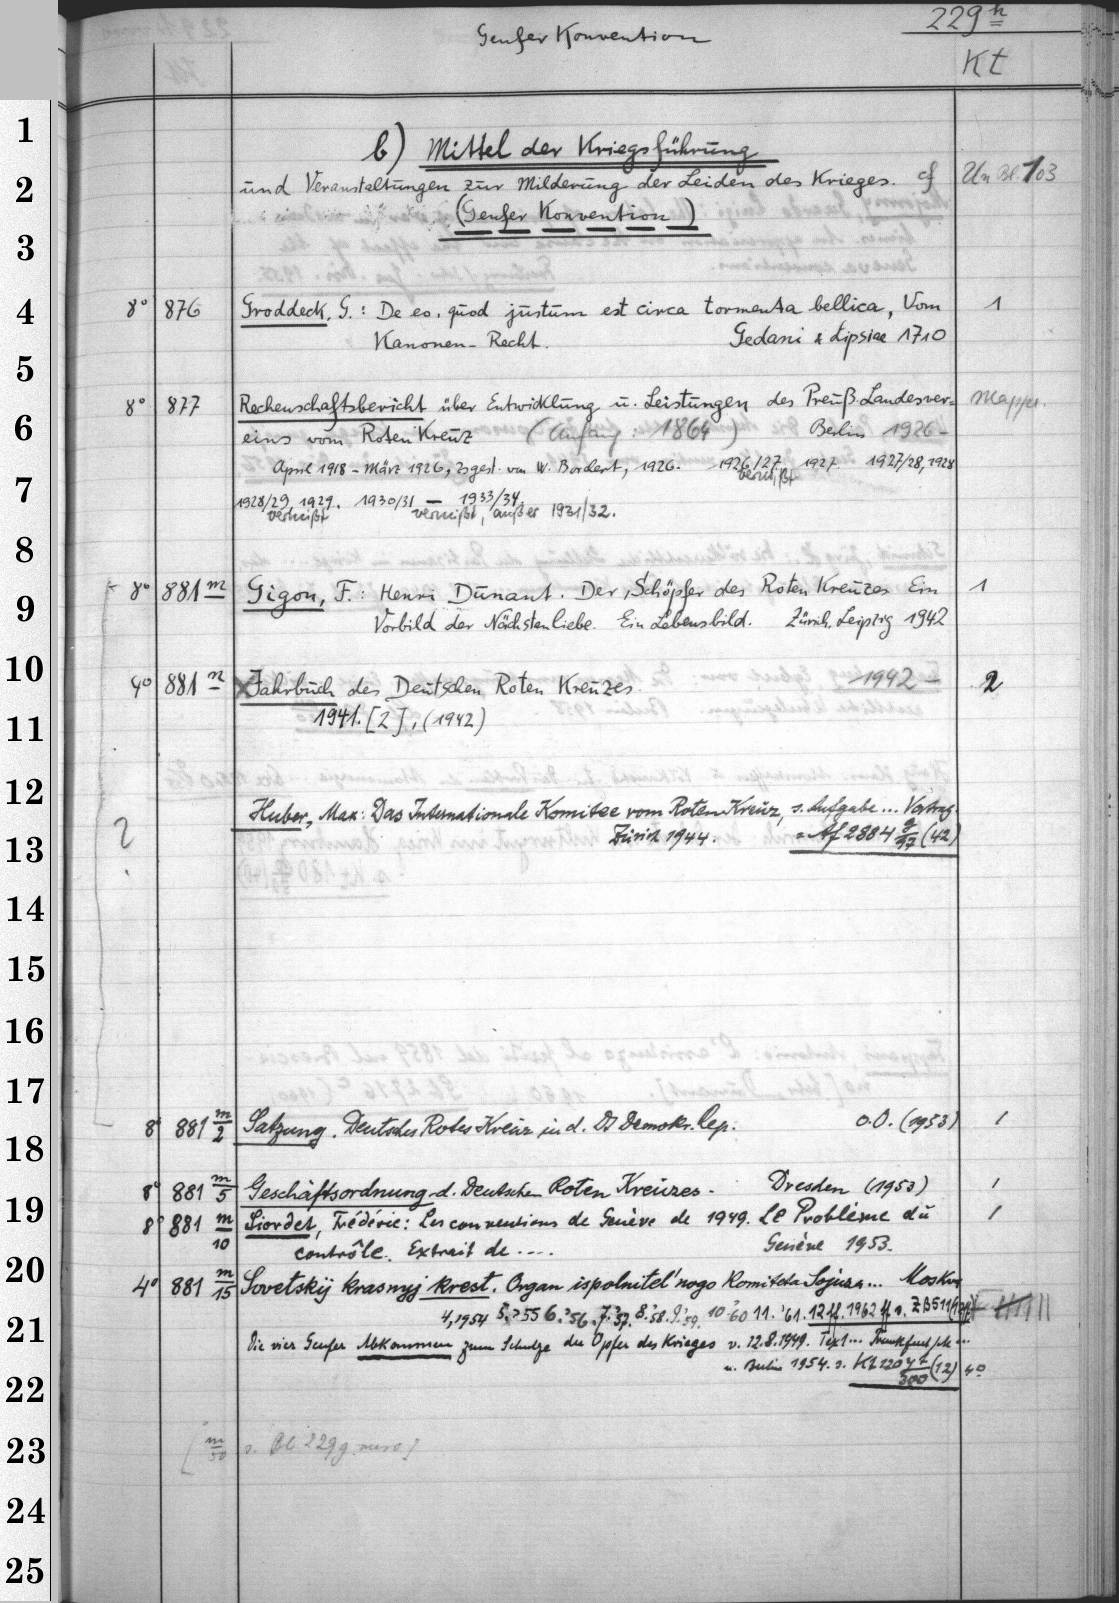 229h
Genfer Konvention
Kt
b) Mittel der Kriegsführung
und Veranstaltungen zur Milderung der Leiden des Krieges. cf Un Bl. 103
(Genfer Konvention)
8° 876 Groddeck, G.: De eo, quod justum est circa tormenta bellica, Vom 1
Kanonen-Recht. Gedani & Lipsiae 1710
8° 877 Rechenschaftsbericht über Entwicklung u. Leistungen des Preuß. Landesver-
eins vom Roten Kreuz (Anfang: 1864) Berlin 1926-
April 1918 - März 1926, zsgest. von W. Bordert, 1926. 1926/27, 1927 1927/28, 1928
vermißt
1928/29 1929. 1930/31 — 1933/34,
vermißt vermißt, außer 1931/32.
8° 881 m Gigon, F.: Henri Dunant. Der Schöpfer des Roten Kreuzes Ein 1
Vorbild der Nächstenliebe. Ein Lebensbild. Zürich, Leipzig 1942
4° 881 n Jahrbuch des Deutschen Roten Kreuzes 1942 - 2
1941. [2], (1942)
Huber, Max: Das Internationale Komitee vom Roten Kreuz, s. Aufgabe... Vortrag.
?
Zürich 1944. = Af 2884 (42)
8° 881 m/2 Satzung. Deutsches Rotes Kreuz in d. Dt Demokr. Rep. o.O. (1953) 1
8° 881 m/5 Geschäftsordnung d. Deutschen Roten Kreuzes. Dresden (1953) 1
8° 881 m/10 Siordet, Frédéric: Les conventions de Genève de 1949. Le Problème du 1
contrôle. Extrait de .... Genève 1953.
4° 881 m/15 Sovetskij krasnyj krest. Organ ispolnitel'nogo Komiteta Sojuza... Moskva
4,1954 5.'55 6.'56 7.'57. 8.'58. 9.'59. 10'60 11.'61. 12ff. 1962 ff s. ZB511
Die vier Genfer Abkommen zum Schutze der Opfer des Krieges v. 12.8.1949. Text... Frankfurt
u. Berlin 1954. s. Kt 220 (12) 4°
[m/50 s. Bl 229g verso]
1
2
3
4
5
6
7
8
9
10
11
12
13
14
15
16
17
18
19
20
21
22
23
24
25